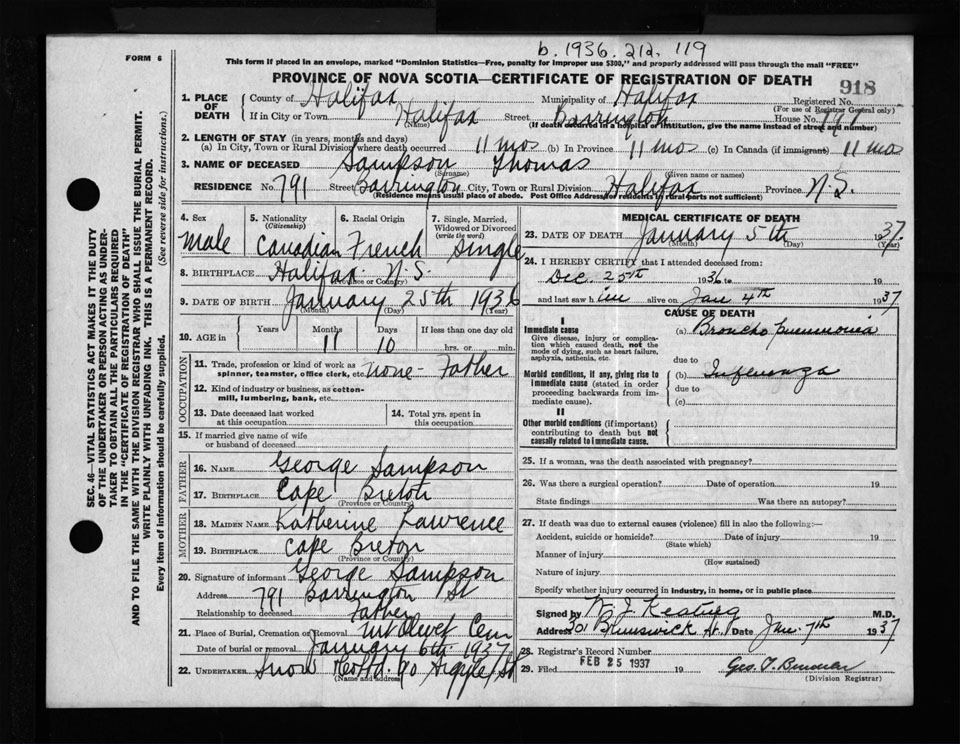 b. 1936. 212. 119
FORM 6
This form if placed in an envelope, marked "Dominion Statistics—Free, penalty for improper use $300," and properly addressed will pass through the mail "FREE"
PROVINCE OF NOVA SCOTIA—CERTIFICATE OF REGISTRATION OF DEATH
918
1. PLACE OF DEATH
County of Halifax Municipality of Halifax Registered No.
(For use of Registrar General only)
If in City or Town Halifax Street Barrington House No.
(Name) (If death occurred in a hospital or institution, give the name instead of street and number)
2. LENGTH OF STAY (in years, months and days)
(a) In City, Town or Rural Division where death occurred 11 mos (b) In Province 11 mos (c) In Canada (if immigrant) 11 mos
3. NAME OF DECEASED Sampson Thomas
(Surname) (Given name or names)
RESIDENCE No. 791 Street Barrington City, Town or Rural Division Halifax Province N.S.
(Residence means usual place of abode. Post Office Address for residents in rural parts not sufficient)
4. Sex
male
5. Nationality
(Citizenship)
Canadian
6. Racial Origin
French
7. Single, Married, Widowed or Divorced
(write the word)
Single
8. BIRTHPLACE Halifax N.S.
(Province or Country)
9. DATE OF BIRTH January 25th 1936
(Month) (Day) (Year)
10. AGE in
Years
Months 11
Days 10
If less than one day old
hrs. or min.
OCCUPATION
11. Trade, profession or kind of work as spinner, teamster, office clerk, etc. none - Father
12. Kind of industry or business, as cotton-mill, lumbering, bank, etc.
13. Date deceased last worked at this occupation
14. Total yrs. spent in this occupation
15. If married give name of wife or husband of deceased
FATHER
16. NAME George Sampson
17. BIRTHPLACE Cape Breton
(Province or Country)
MOTHER
18. MAIDEN NAME Katherine Lawrence
19. BIRTHPLACE Cape Breton
(Province or Country)
20. Signature of informant George Sampson
Address 791 Barrington St
Relationship to deceased Father
21. Place of Burial, Cremation or Removal Mt Olivet Cem
Date of burial or removal January 6th 1937
22. UNDERTAKER Snow Co Ltd. 90 Argyle St
(Name and address)
MEDICAL CERTIFICATE OF DEATH
23. DATE OF DEATH January 5th 1937
(Month) (Day) (Year)
24. I HEREBY CERTIFY that I attended deceased from:
Dec. 25th 1936 to 19
and last saw him alive on Jan 4th 1937
CAUSE OF DEATH
I
Immediate cause
Give disease, injury or complication which caused death, not the mode of dying, such as heart failure, asphyxia, asthenia, etc.
(a) Broncho pneumonia
due to
Morbid conditions, if any, giving rise to immediate cause (stated in order proceeding backwards from immediate cause).
(b) Influenza
due to
(c)
II
Other morbid conditions (if important) contributing to death but not causally related to immediate cause.
25. If a woman, was the death associated with pregnancy?
26. Was there a surgical operation? Date of operation 19
State findings Was there an autopsy?
27. If death was due to external causes (violence) fill in also the following:—
Accident, suicide or homicide? Date of injury 19
(State which)
Manner of injury
(How sustained)
Nature of injury
Specify whether injury occurred in industry, in home, or in public place
Signed by W. J. Keating M.D.
Address 301 Brunswick St. Date Jan. 7th 1937
28. Registrar's Record Number
29. Filed FEB 25 1937 19
(Division Registrar)
SEC. 46—VITAL STATISTICS ACT MAKES IT THE DUTY
OF THE UNDERTAKER OR PERSON ACTING AS UNDER-
TAKER TO OBTAIN ALL THE PARTICULARS REQUIRED
IN THE "CERTIFICATE OF REGISTRATION OF DEATH"
AND TO FILE THE SAME WITH THE DIVISION REGISTRAR WHO SHALL ISSUE THE BURIAL PERMIT.
WRITE PLAINLY WITH UNFADING INK. THIS IS A PERMANENT RECORD.
Every item of information should be carefully supplied. (See reverse side for instructions.)